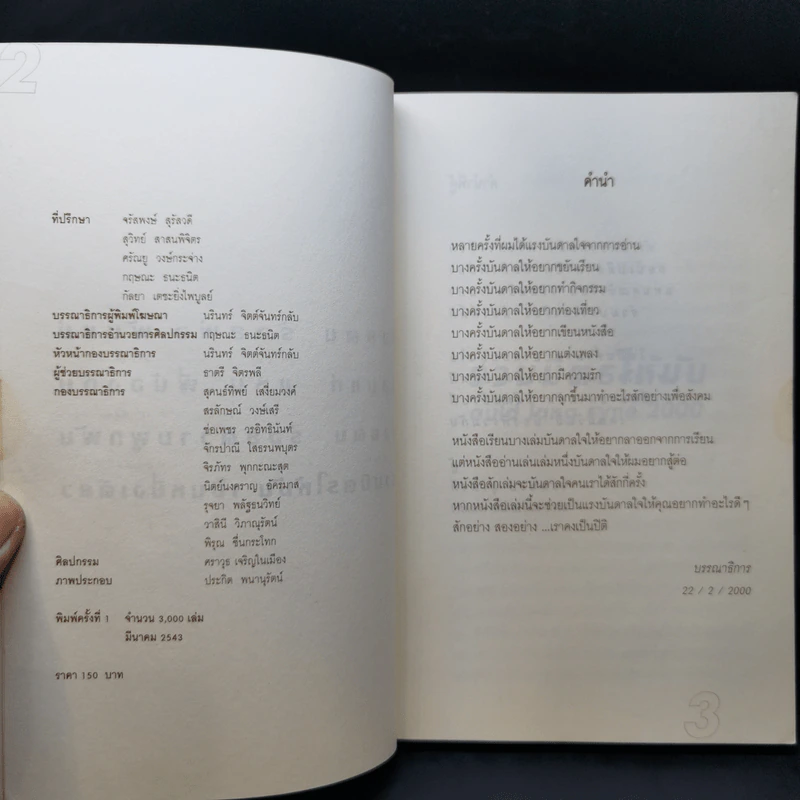 2
ที่ปรึกษา จรัสพงษ์ สุรัสวดี
สุวิทย์ สาสนพิจิตร
ศรัณยู วงษ์กระจ่าง
กฤษณะ ธนะธนิต
กัลยา เตชะยิ่งไพบูลย์
บรรณาธิการผู้พิมพ์โฆษณา นรินทร์ จิตต์จันทร์กลับ
บรรณาธิการอำนวยการศิลปกรรม กฤษณะ ธนะธนิต
หัวหน้ากองบรรณาธิการ นรินทร์ จิตต์จันทร์กลับ
ผู้ช่วยบรรณาธิการ ธาตรี จิตรพลี
กองบรรณาธิการ สุคนธ์ทิพย์ เสงี่ยมวงศ์
สรลักษณ์ วงษ์เสรี
ช่อเพชร วรอิทธินันท์
จักรปาณี โสธรนพบุตร
จิรภัทร พุกกะณะสุต
นิตย์นงคราญ อัครมาส
รุจยา พลัฐธนวิทย์
วาสินี วิภาณุรัตน์
พิรุณ ชื่นกระโทก
ศิลปกรรม ศราวุธ เจริญในเมือง
ภาพประกอบ ประกิต พนานุรัตน์
พิมพ์ครั้งที่ 1 จำนวน 3,000 เล่ม
มีนาคม 2543
ราคา 150 บาท
คำนำ
หลายครั้งที่ผมได้แรงบันดาลใจจากการอ่าน
บางครั้งบันดาลให้อยากขยันเรียน
บางครั้งบันดาลให้อยากทำกิจกรรม
บางครั้งบันดาลให้อยากท่องเที่ยว
บางครั้งบันดาลให้อยากเขียนหนังสือ
บางครั้งบันดาลให้อยากแต่งเพลง
บางครั้งบันดาลให้อยากมีความรัก
บางครั้งบันดาลให้อยากลุกขึ้นมาทำอะไรสักอย่างเพื่อสังคม
หนังสือเรียนบางเล่มบันดาลใจให้อยากลาออกจากการเรียน
แต่หนังสืออ่านเล่นเล่มหนึ่งบันดาลใจให้ผมอยากสู้ต่อ
หนังสือสักเล่มจะบันดาลใจคนเราได้สักกี่ครั้ง
หากหนังสือเล่มนี้จะช่วยเป็นแรงบันดาลใจให้คุณอยากทำอะไรดี ๆ
สักอย่าง สองอย่าง ...เราคงเป็นปิติ
บรรณาธิการ
22 / 2 / 2000
3